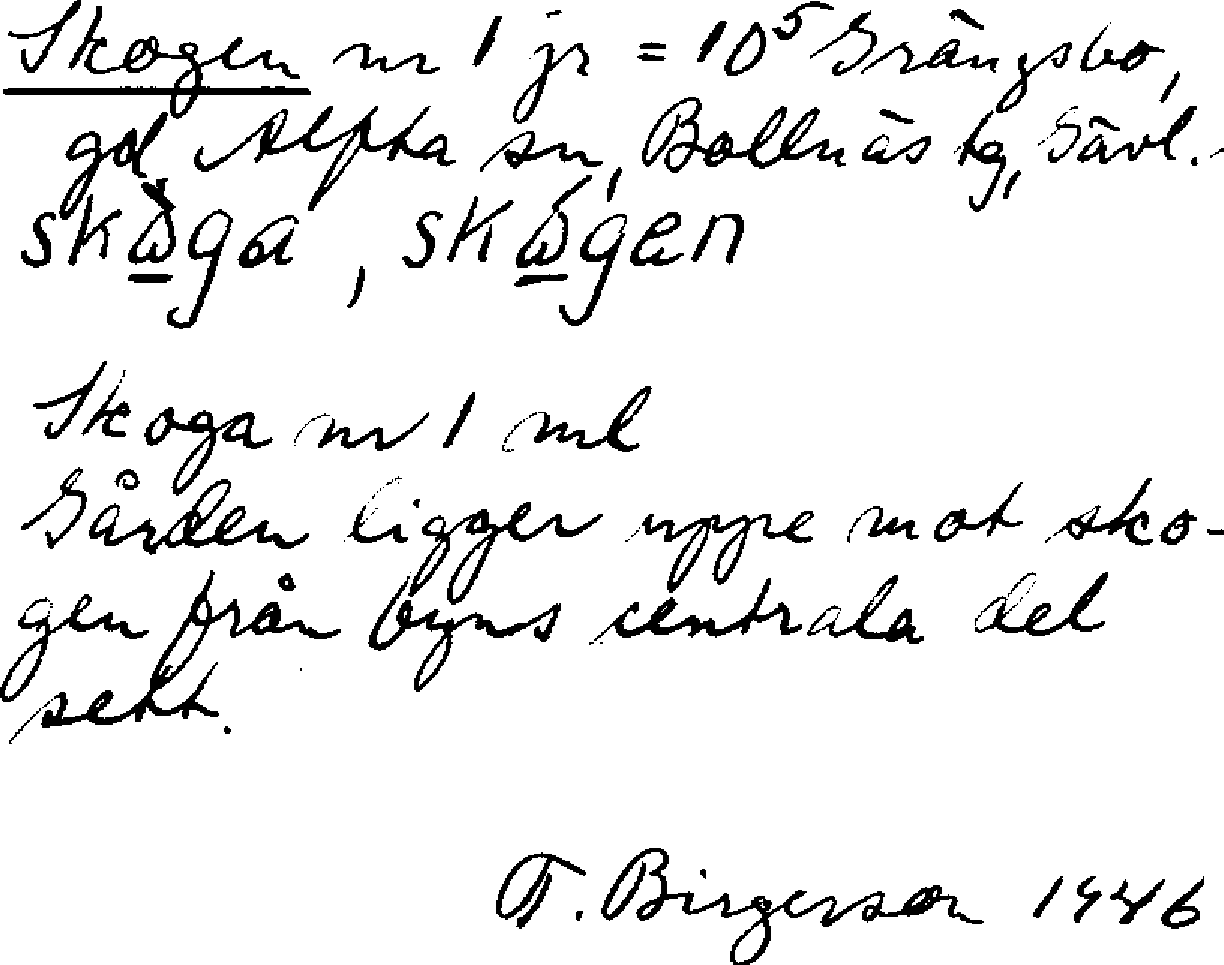 Skogen nr 1 jr = 10⁵ Grängsbo,
gd, Alfta sn, Bollnäs tg, Gävl.
skò̠ga, skó̠gen
Skoga nr 1 ml
Gården ligger uppe mot sko-
gen från byns centrala del
sett.
F. Birgerson 1946